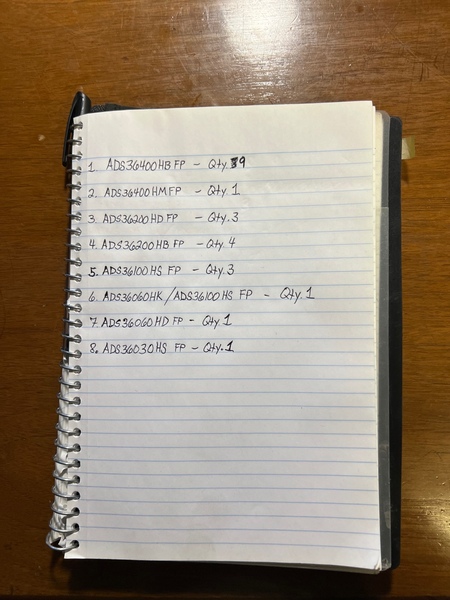 1. ADS36400HB FP - Qty. 9
2. ADS36400HMFP - Qty. 1
3. ADS36200HD FP - Qty. 3
4. ADS36200HB FP - Qty. 4
5. ADS36100HS FP - Qty. 3
6. ADS36060HK/ADS36100HS FP - Qty. 1
7. ADS36060HD FP - Qty. 1
8. ADS36030HS FP - Qty. 1